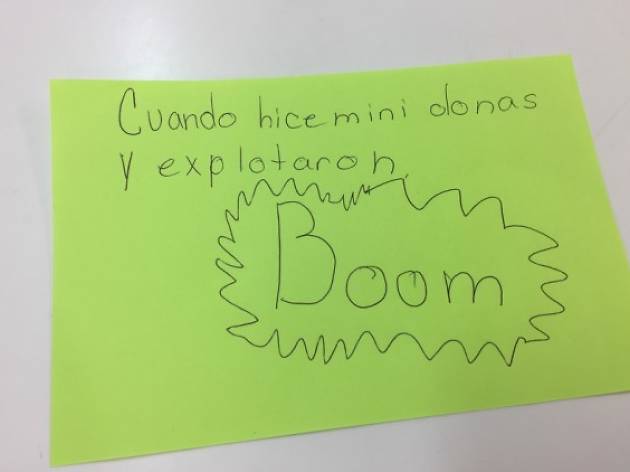 Cuando hice mini donas
y explotaron.
Boom